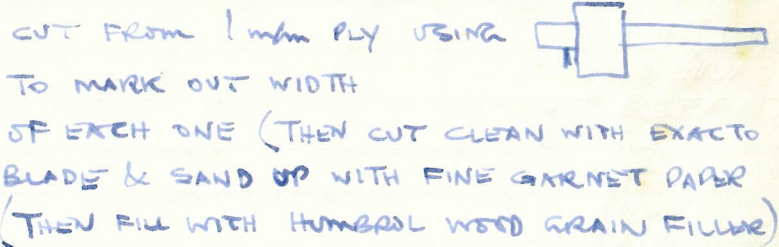 CUT FROM 1 m/m PLY USING
TO MARK OUT WIDTH
OF EACH ONE (THEN CUT CLEAN WITH EXACTO
BLADE & SAND UP WITH FINE GARNET PAPER
(THEN FILL WITH HUMBROL WOOD GRAIN FILLER)